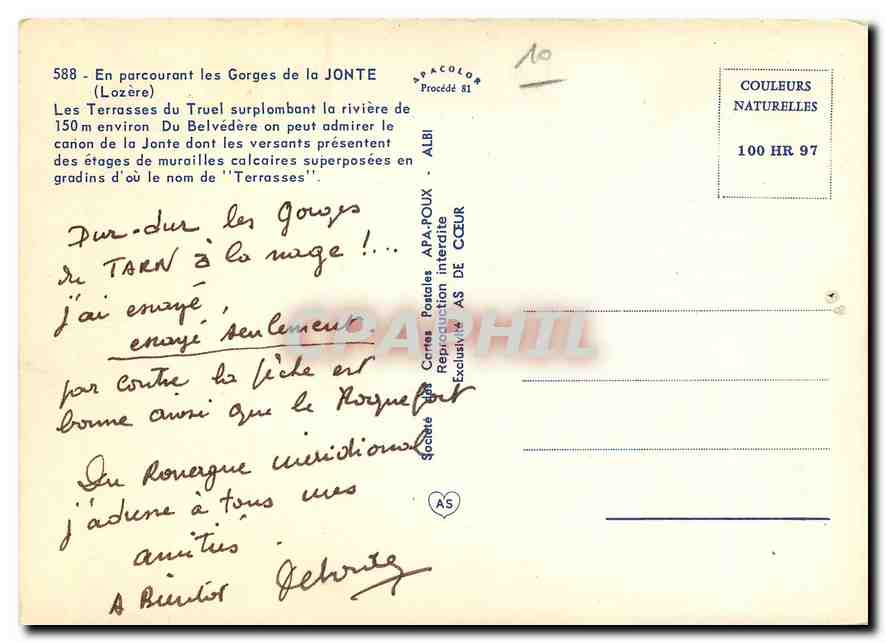 588 - En parcourant les Gorges de la JONTE
(Lozère)
Les Terrasses du Truel surplombant la rivière de
150 m environ Du Belvédère on peut admirer le
cañon de la Jonte dont les versants présentent
des étages de murailles calcaires superposées en
gradins d'où le nom de "Terrasses".
Dur-dur les Gorges
du TARN à la nage !...
j'ai essayé,
essayé seulement.
par contre la pêche est
bonne ainsi que le Roquefort
Du Rouergue méridional
j'adresse à tous mes
amitiés.
A Bientôt
APACOLOR
Procédé 81
Société des Cartes Postales APA-POUX - ALBI
Reproduction interdite
Exclusivité AS DE CŒUR
AS
10
COULEURS
NATURELLES
100 HR 97
CPAPHIL